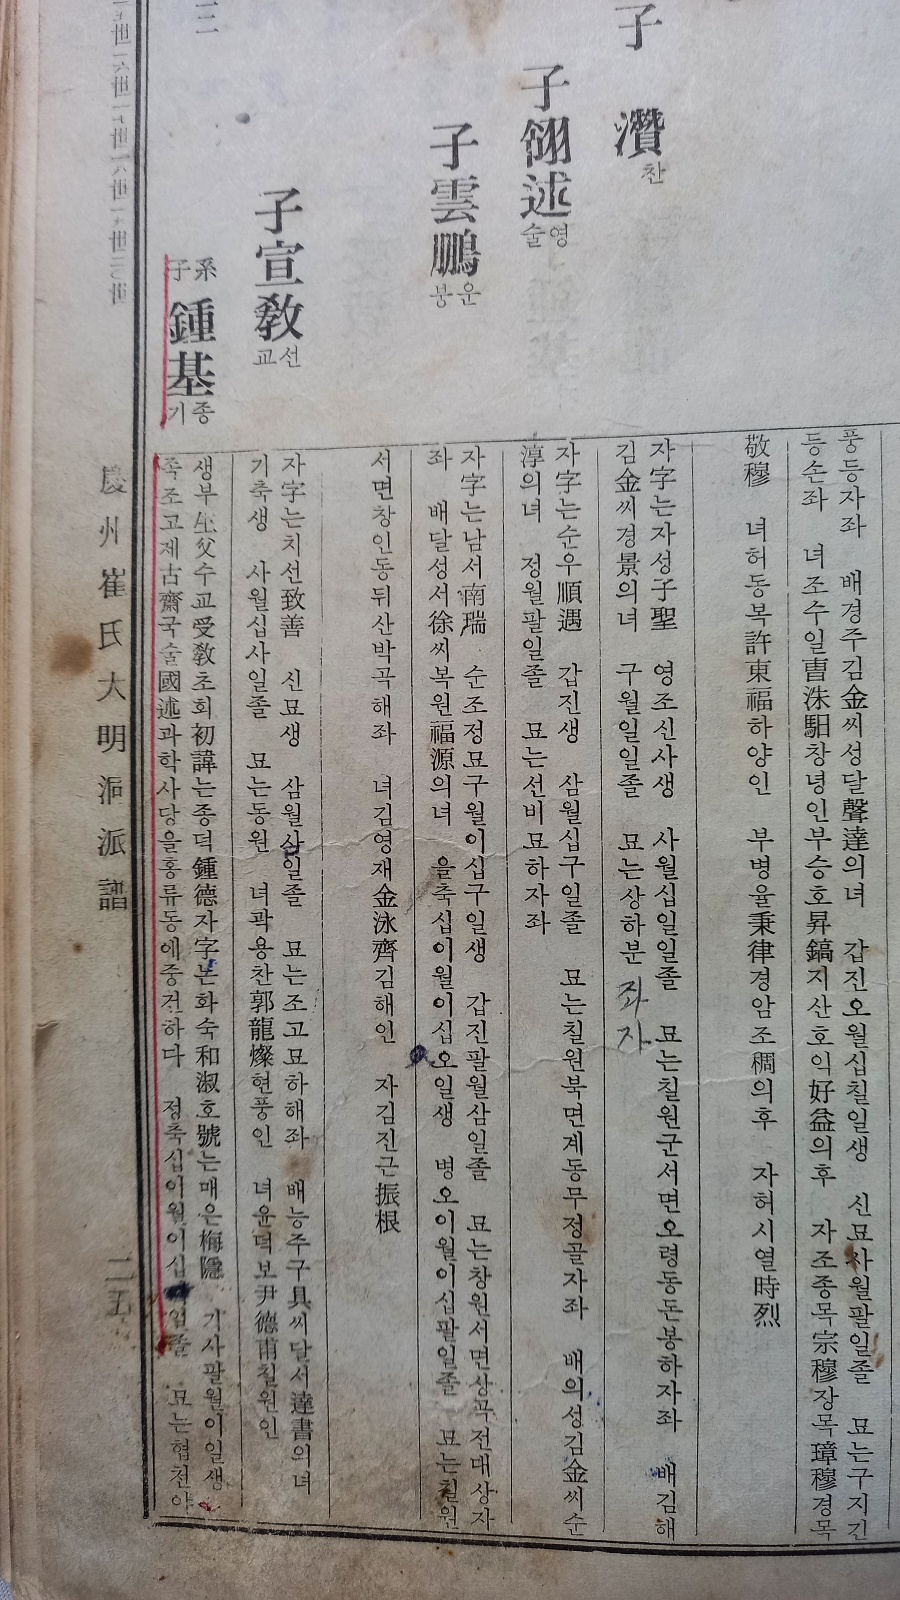 풍등자좌 배경주김金씨성달聲達의녀 갑진오월십칠일생 신묘사월팔일졸 묘는구지긴
등손좌 녀조수일曺洙馹창녕인부승호昇鎬지산호익好益의후 자조종목宗穆장목璋穆경목
敬穆 녀허동복許東福하양인 부병율秉律경암조稠의후 자허시열時烈
子 瓚찬
자字는자성子聖 영조신사생 사월십일일졸 묘는칠원군서면오령동돈봉하자좌 배김해
김金씨경景의녀 구월일일졸 묘는상하분 좌자
子翎述영술
자字는순우順遇 갑진생 삼월십구일졸 묘는칠원북면계동무정골자좌 배의성김金씨순
淳의녀 정월팔일졸 묘는선비묘하자좌
子雲鵬운붕
자字는남서南瑞 순조정묘구월이십구일생 갑진팔월삼일졸 묘는창원서면상곡전대상자
좌 배달성서徐씨복원福源의녀 을축십이월이십오일생 병오이월이십팔일졸 묘는칠원
서면창인동뒤산박곡해좌 녀김영재金泳齊김해인 자김진근振根
子宣敎선교
자字는치선致善 신묘생 삼월삼일졸 묘는조고묘하해좌 배능주구具씨달서達書의녀
기축생 사월십사일졸 묘는동원 녀곽용찬郭龍燦현풍인 녀윤덕보尹德甫칠원인
系子 鍾基종기
생부生父수교受敎초휘初諱는종덕鍾德자字는화숙和淑호號는매은梅隱 기사팔월이일생
족조고제古齋국술國述과학사당을홍류동에중건하다 정축십이월이십 일졸 묘는협천야
慶州崔氏大明派譜
二五